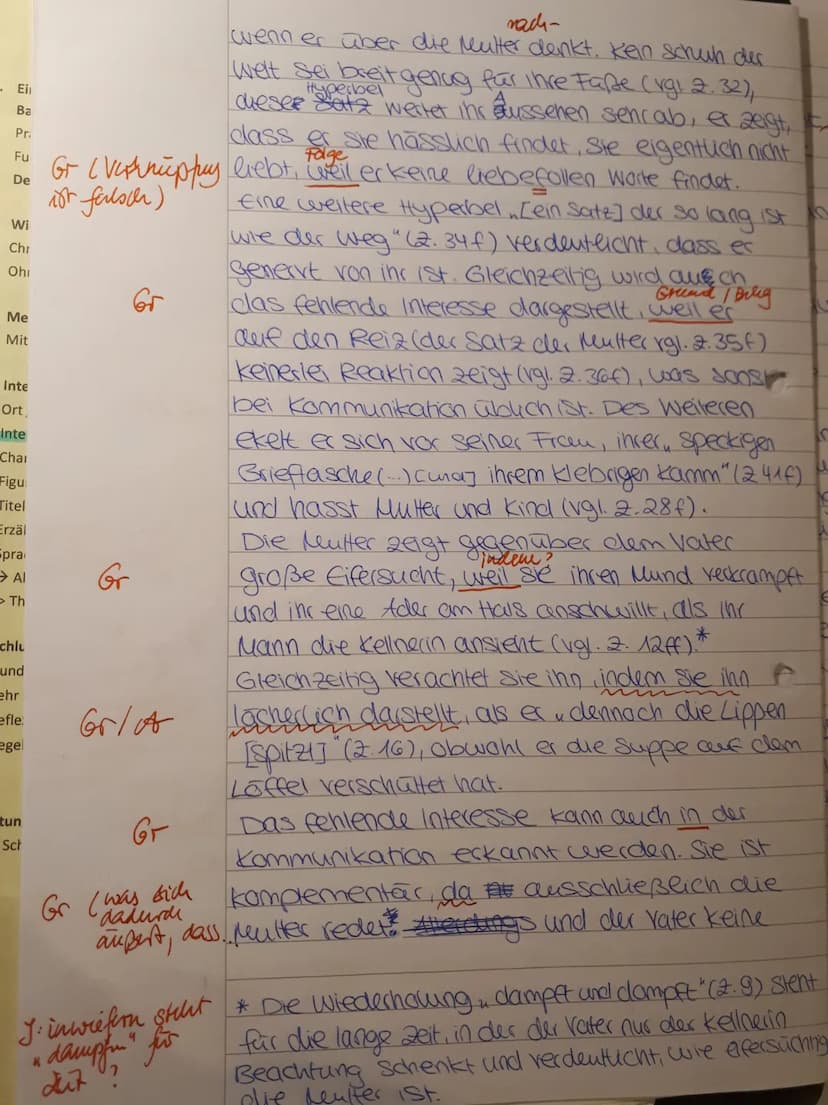 nach-
wenn er über die Mutter denkt. Kein Schuh der
Welt sei breit genug für ihre Füße (vgl. Z. 32),
Hyperbel
diese Satz wertet ihr Aussehen sehr ab, er zeigt,
dass er sie hässlich findet, sie eigentlich nicht
Folge
liebt, weil er keine liebefollen Worte findet.
Gr (Verknüpfung
ist falsch)
Eine weitere Hyperbel „[ein Satz] der so lang ist
wie der Weg" (Z. 34f) verdeutlicht, dass er
genervt von ihr ist. Gleichzeitig wird auch
Grund / Beleg
Gr
das fehlende Interesse dargestellt, weil er
auf den Reiz (der Satz der Mutter vgl. Z. 35f)
keinerlei Reaktion zeigt (vgl. Z. 36f), was sonst
bei Kommunikation üblich ist. Des Weiteren
ekelt er sich vor seiner Frau, ihrer „speckigen
Brieftasche (...) [und] ihrem klebrigen Kamm" (Z 41f)
und hasst Mutter und Kind (vgl. Z. 28f).
Die Mutter zeigt gegenüber dem Vater
indem?
Gr
große Eifersucht, weil sie ihren Mund verkrampft
und ihr eine Ader am Hals anschwillt, als ihr
Mann die Kellnerin ansieht (vgl. Z. 12ff).*
Gleichzeitig verachtet sie ihn, indem sie ihn
Gr/A
lächerlich darstellt, als er „dennoch die Lippen
[spitzt]" (Z. 16), obwohl er die Suppe auf dem
Löffel verschüttet hat.
Das fehlende Interesse kann auch in der
Gr
Kommunikation erkannt werden. Sie ist
komplementär, da ausschließlich die
Gr (was sich
dadurch
äußert, dass...
Mutter redet Allerdings und der Vater keine
* Die Wiederholung „dampft und dampft" (Z. 9) steht
für die lange Zeit, in der der Vater nur der Kellnerin
Beachtung schenkt und verdeutlicht, wie eifersüchtig
die Mutter ist.
J: inwiefern steht
„dampfen" für
Zeit?
Ei
Ba
Pr
Fu
De
Wi
Chr
Ohr
Me
Mit
Inte
Ort
Inte
Char
Figu
Titel
Erzäl
Spra
→ Al
> Th
chlu
und
ehr
efle
egel
tun
Sch